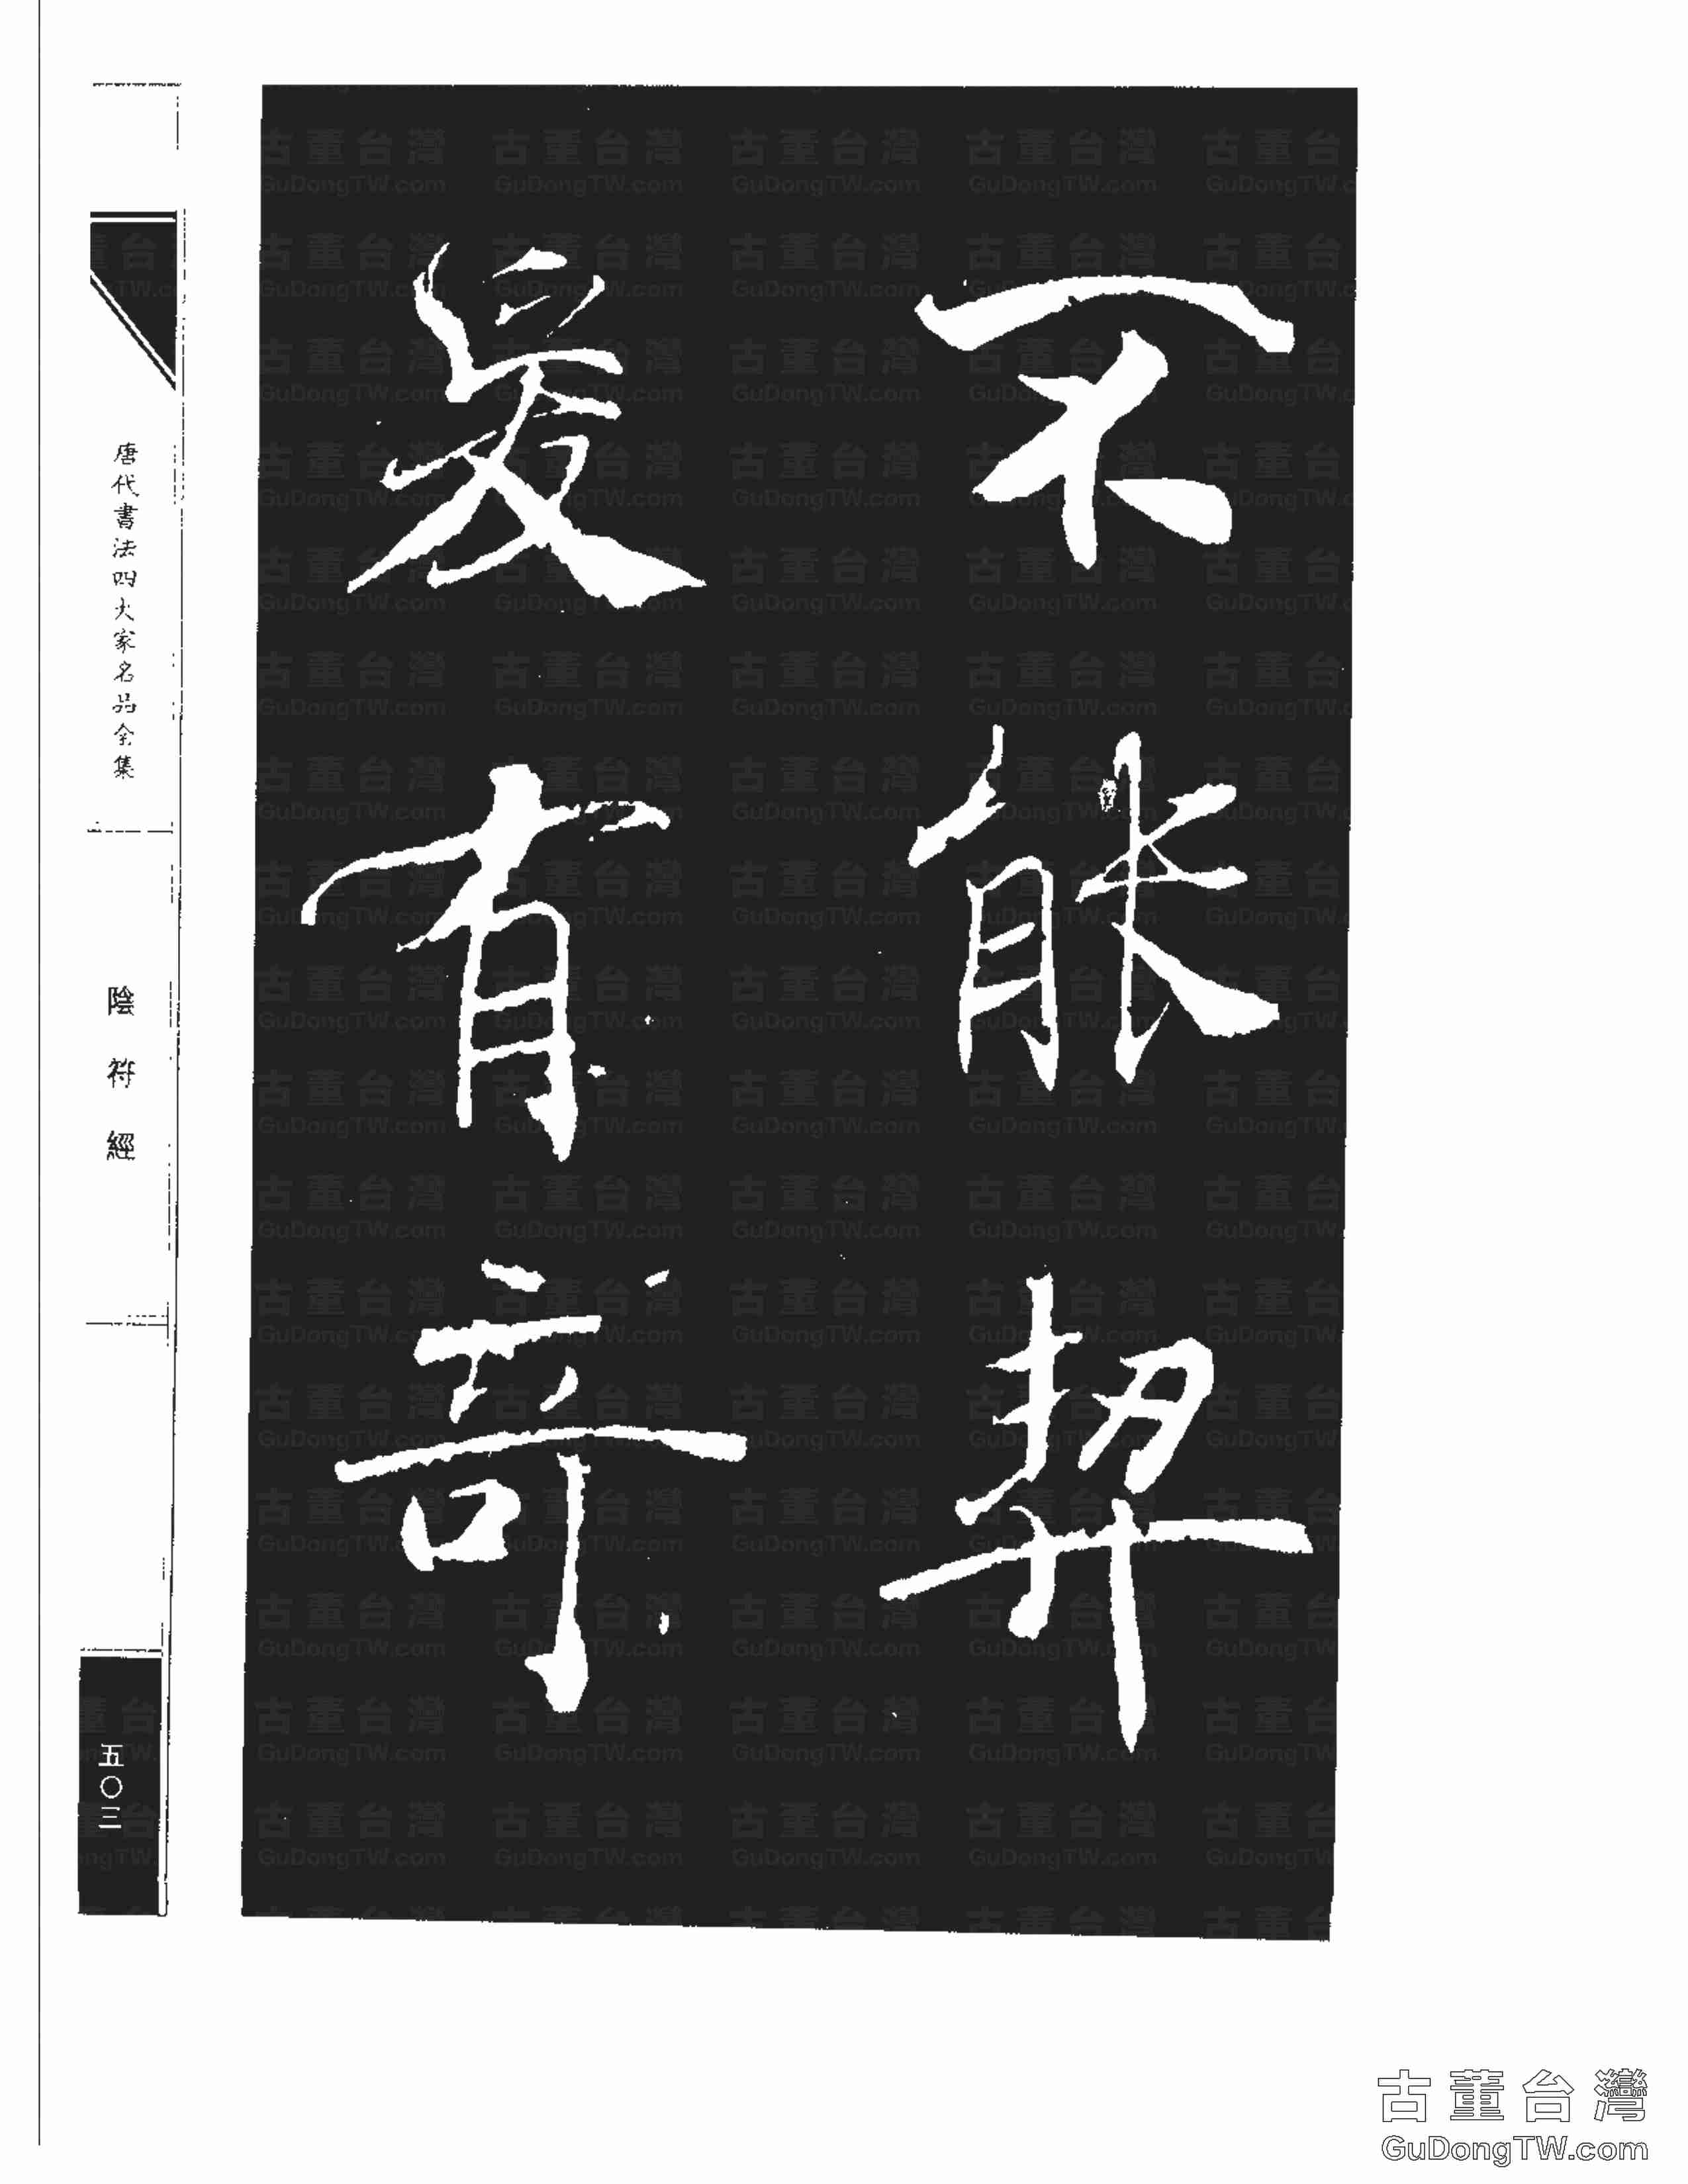 不能契
爰有奇
唐代書法四大家名品全集
陰符經
五〇三
古董台灣
GuDongTW.com